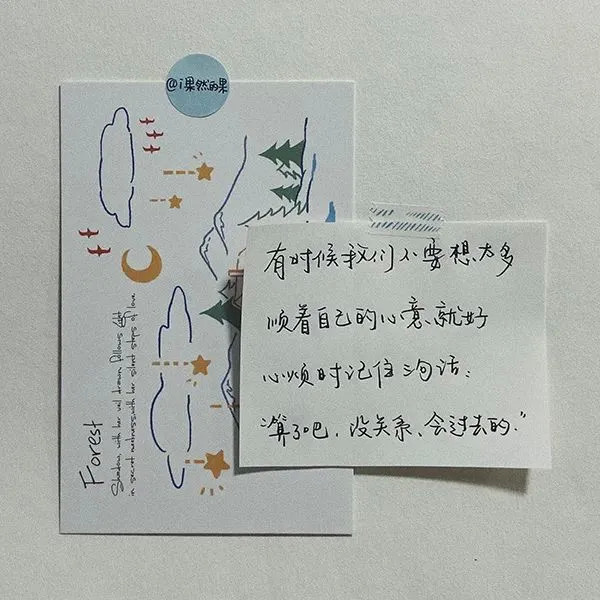 @i果然的果
有时候我们不要想太多
顺着自己的心意、就好
心烦时记住三句话：
“算了吧，没关系、会过去的.”
Forest
Shadow, with her veil drawn, follows
in secret meekness, with her silent steps of love.